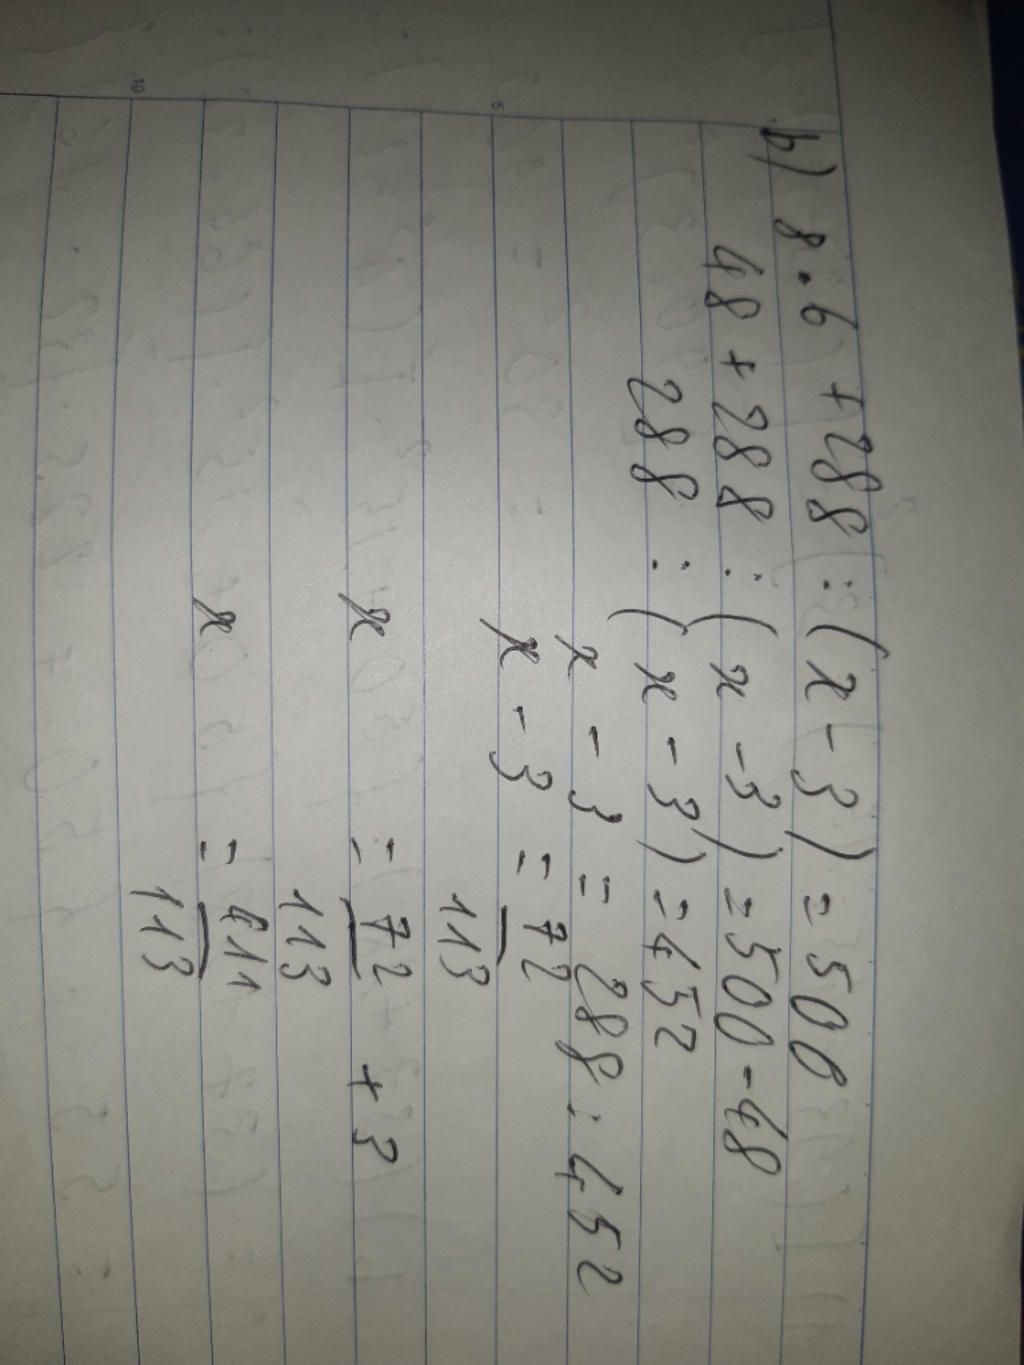 b) 8.6 + 288 : (x - 3) = 500
48 + 288 : (x - 3) = 500 - 48
288 : (x - 3) = 452
x - 3 = 288 : 452
x - 3 = 72/113
x = 72/113 + 3
x = 411/113
5
10